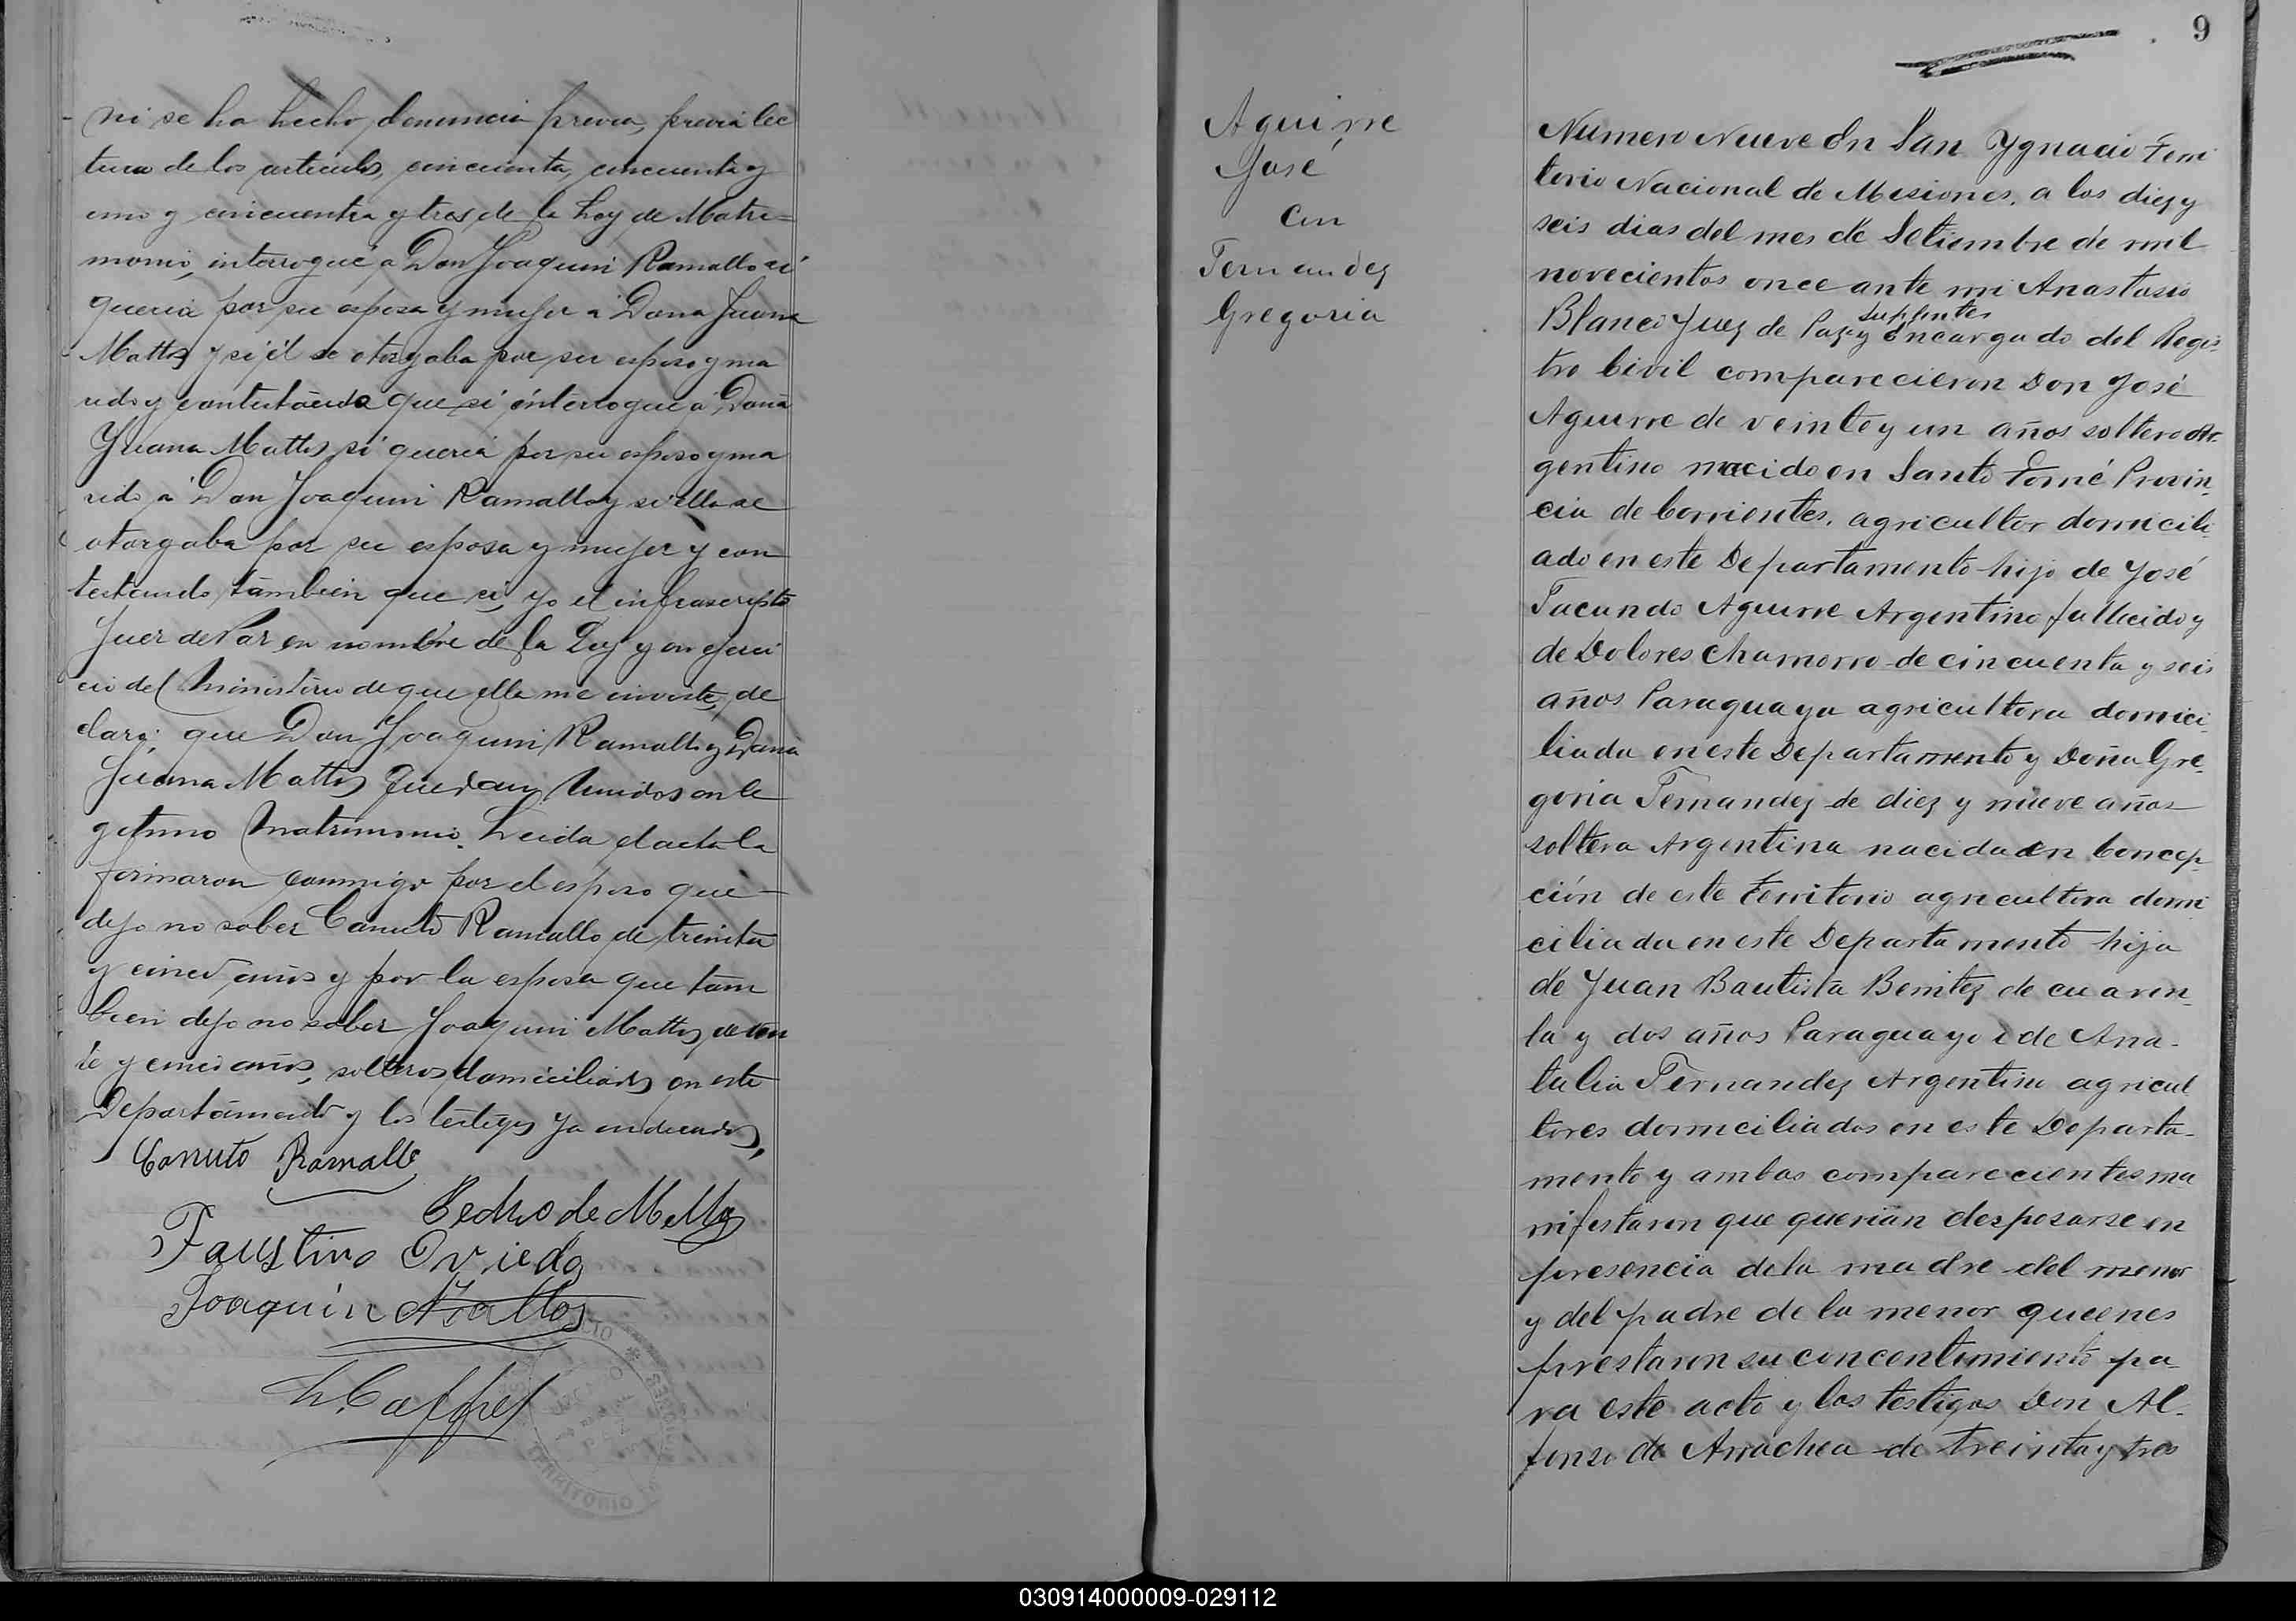 ni se ha hecho denuncia previa, previa lec
tura de los articulos, cincuenta, cincuenta y
uno y cincuenta y tres de la Ley de Matri-
monio, interrogué a Don Joaquin Ramallo si
queria por su esposa y mujer a Dona Juana
Mattos y si él se otorgaba por su esposo y ma
rido y contestando que si interrogue a Dona
Juana Mattos si queria por su esposo y ma
rido a Don Joaquin Ramallo y si ella se
otorgaba por su esposa y mujer y con
testando tambien que si, yo el infrascripto
Juez de Paz en nombre de la Ley y en ejerci
cio del Ministerio de que ella me inviste, de
claro: que Don Joaquin Ramallo y Dona
Juana Mattos Quedan Unidos en le
gitimo Matrimonio. Leida el acta la
firmaron conmigo por el esposo que
dijo no saber Canuto Ramallo de treinta
y cinco años y por la esposa que tam
bien dijo no saber Joaquin Mattos, de vein
te y cinco años, solteros domiciliados en este
Departamento y los testigos ya indicados,
Canuto Ramallo
Pedro de Mello
Faustino Oviedo
Joaquin Mattos
TERRITORIO
9
Aguirre
José
Con
Fernandez
Gregoria
Numero Nueve En San Ygnacio Terri
torio Nacional de Misiones, a los diez y
seis dias del mes de Setiembre de mil
novecientos once ante mi Anastasio
Blanco Juez de Paz suplente y Encargado del Regis-
tro Civil comparecieron Don José
Aguirre de veinte y un años soltero Ar-
gentino nacido en Santo Tomé Provin-
cia de Corrientes, agricultor domicili-
ado en este Departamento hijo de José
Facundo Aguirre Argentino fallecido y
de Dolores Chamorro de cincuenta y seis
años Paraguaya agricultora domici-
liada en este Departamento y Doña Gre-
goria Fernandez de diez y nueve años
soltera Argentina nacida en Concep-
ción de este Territorio agricultora domi
ciliada en este Departamento hija
de Juan Bautista Benitez de cuaren-
ta y dos años Paraguayo i de Ana-
talia Fernandez Argentina agricul
tores domiciliados en este Departa-
mento y ambos comparecientes ma
nifestaron que querian desposarse en
presencia de la madre del menor
y del padre de la menor quienes
prestaron su concentimiento pa-
ra este acto y los testigos Don Al-
fonso de Arrachea de treinta y tres
030914000009-029112